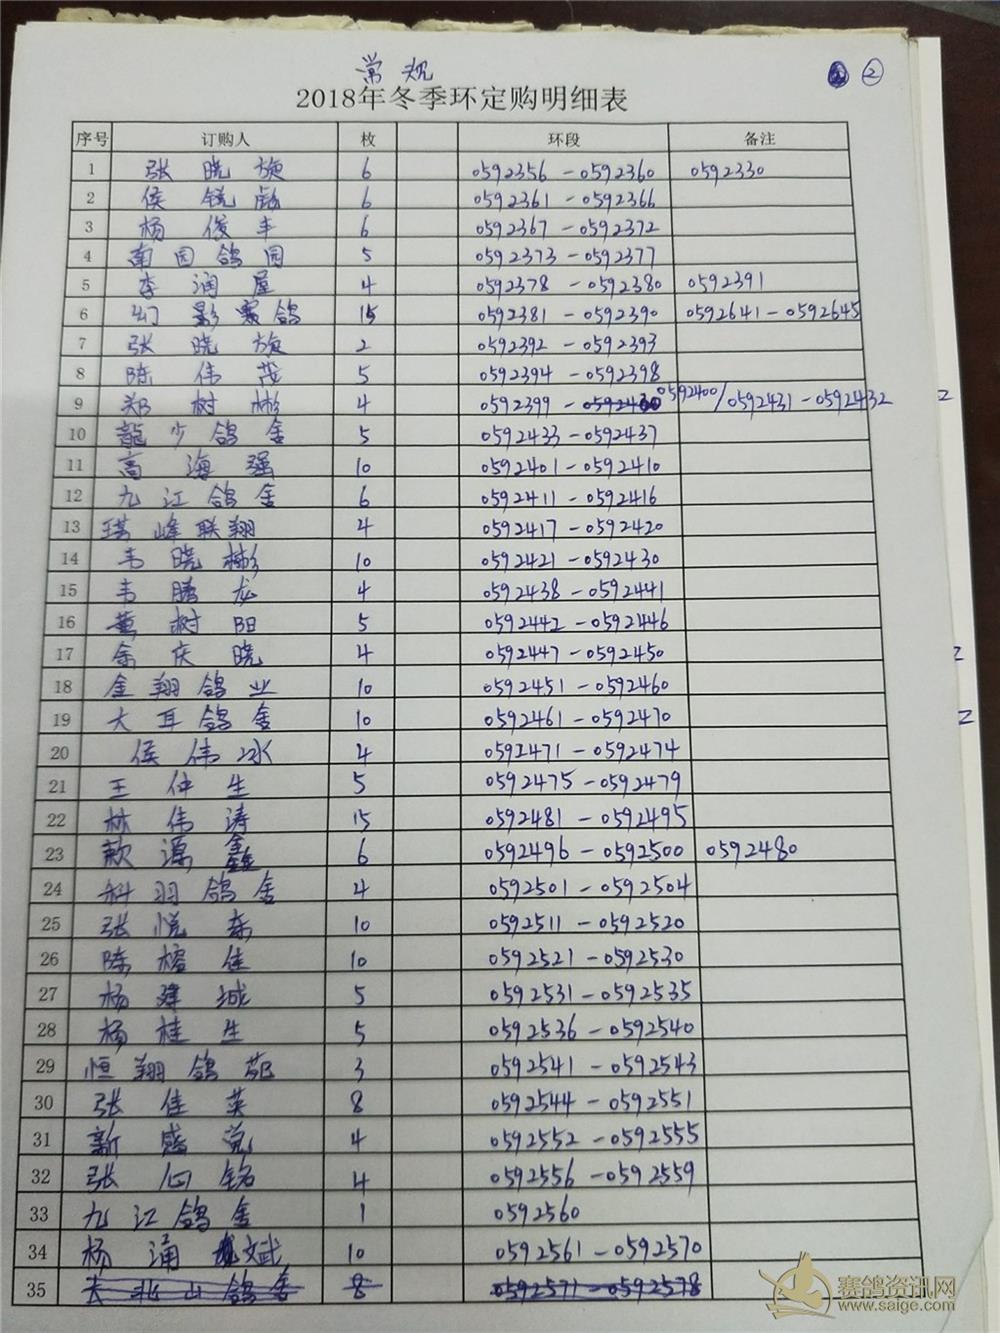 常规
②
2018年冬季环定购明细表
序号 订购人 枚 环段 备注
1 张晓旋 6 0592356-0592360 0592330
2 侯锐彪 6 0592361-0592366
3 杨俊丰 6 0592367-0592372
4 南园鸽园 5 0592373-0592377
5 李润屋 4 0592378-0592380 0592391
6 幻影赛鸽 15 0592381-0592390 0592641-0592645
7 张晓旋 2 0592392-0592393
8 陈伟茂 5 0592394-0592398
9 郑树彬 4 0592399- 0592400/0592431-0592432
10 龍少鸽舍 5 0592433-0592437
11 高海强 10 0592401-0592410
12 九江鸽舍 6 0592411-0592416
13 琪峰联翔 4 0592417-0592420
14 韦晓彬 10 0592421-0592430
15 韦腾龙 4 0592438-0592441
16 黄树阳 5 0592442-0592446
17 余庆晓 4 0592447-0592450
18 金翔鸽业 10 0592451-0592460
19 大耳鸽舍 10 0592461-0592470
20 侯伟冰 4 0592471-0592474
21 王仲生 5 0592475-0592479
22 林伟涛 15 0592481-0592495
23 歆源鑫 6 0592496-0592500 0592480
24 科羽鸽舍 4 0592501-0592504
25 张悦森 10 0592511-0592520
26 陈榕佳 10 0592521-0592530
27 杨建城 5 0592531-0592535
28 杨桂生 5 0592536-0592540
29 恒翔鸽苑 3 0592541-0592543
30 张佳英 8 0592544-0592551
31 新感觉 4 0592552-0592555
32 张心铭 4 0592556-0592559
33 九江鸽舍 1 0592560
34 杨涌斌 10 0592561-0592570
35 大北山鸽舍 8 0592571-0592578
赛鸽资讯网
www.saige.com